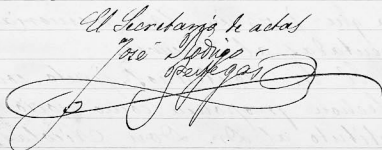 El Secretario de actas
José Rodrigo